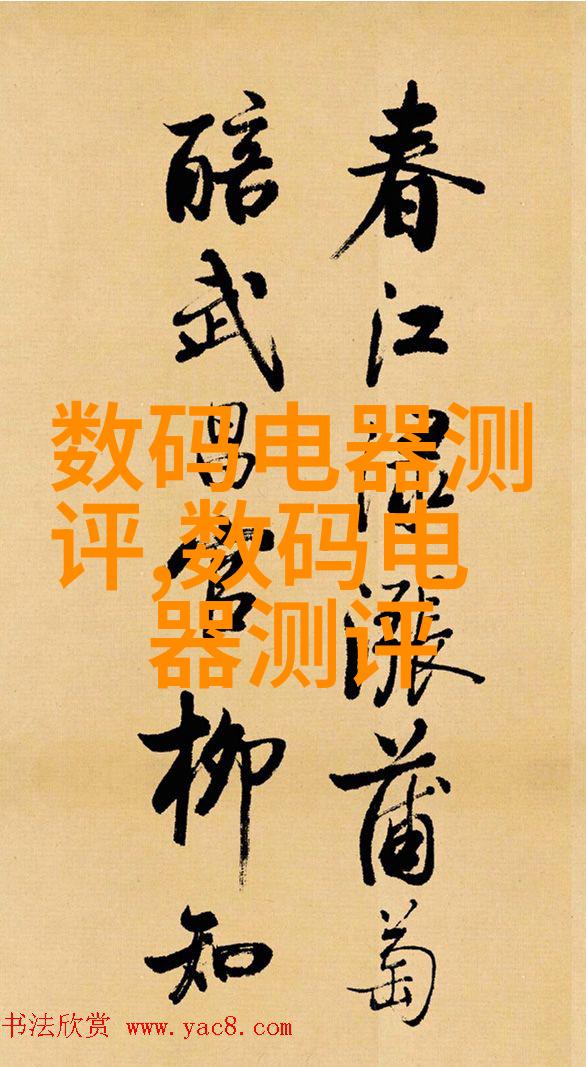 春江渌涨蒲萄
醅武昌官柳知
数码电器测
评,数码电
器测评
书法欣赏 www.yac8.com